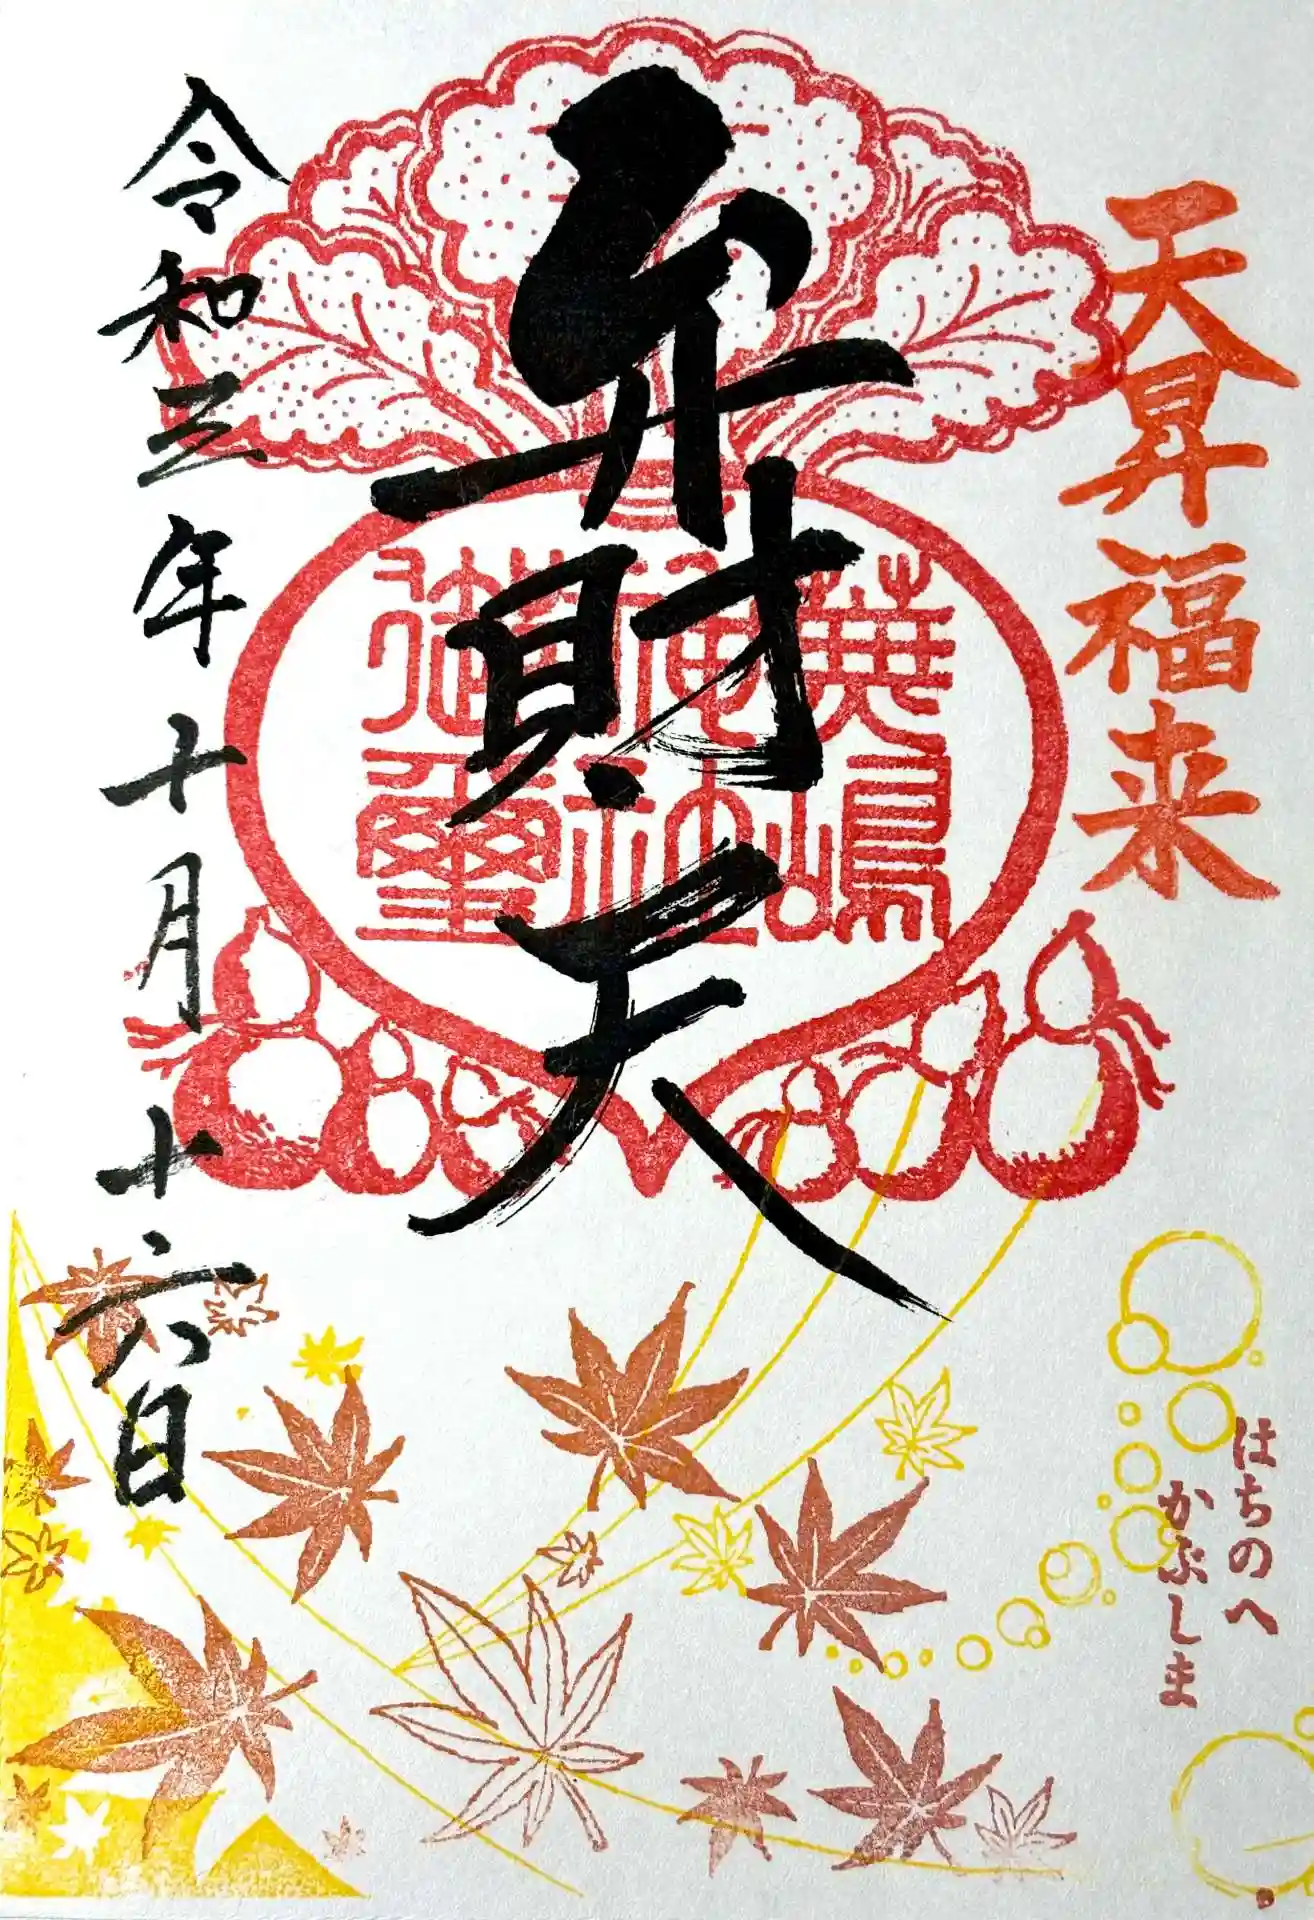 天昇福来
弁財天
蕪嶋
神社
御璽
令和三年十月十六日
はちのへ
かぶしま